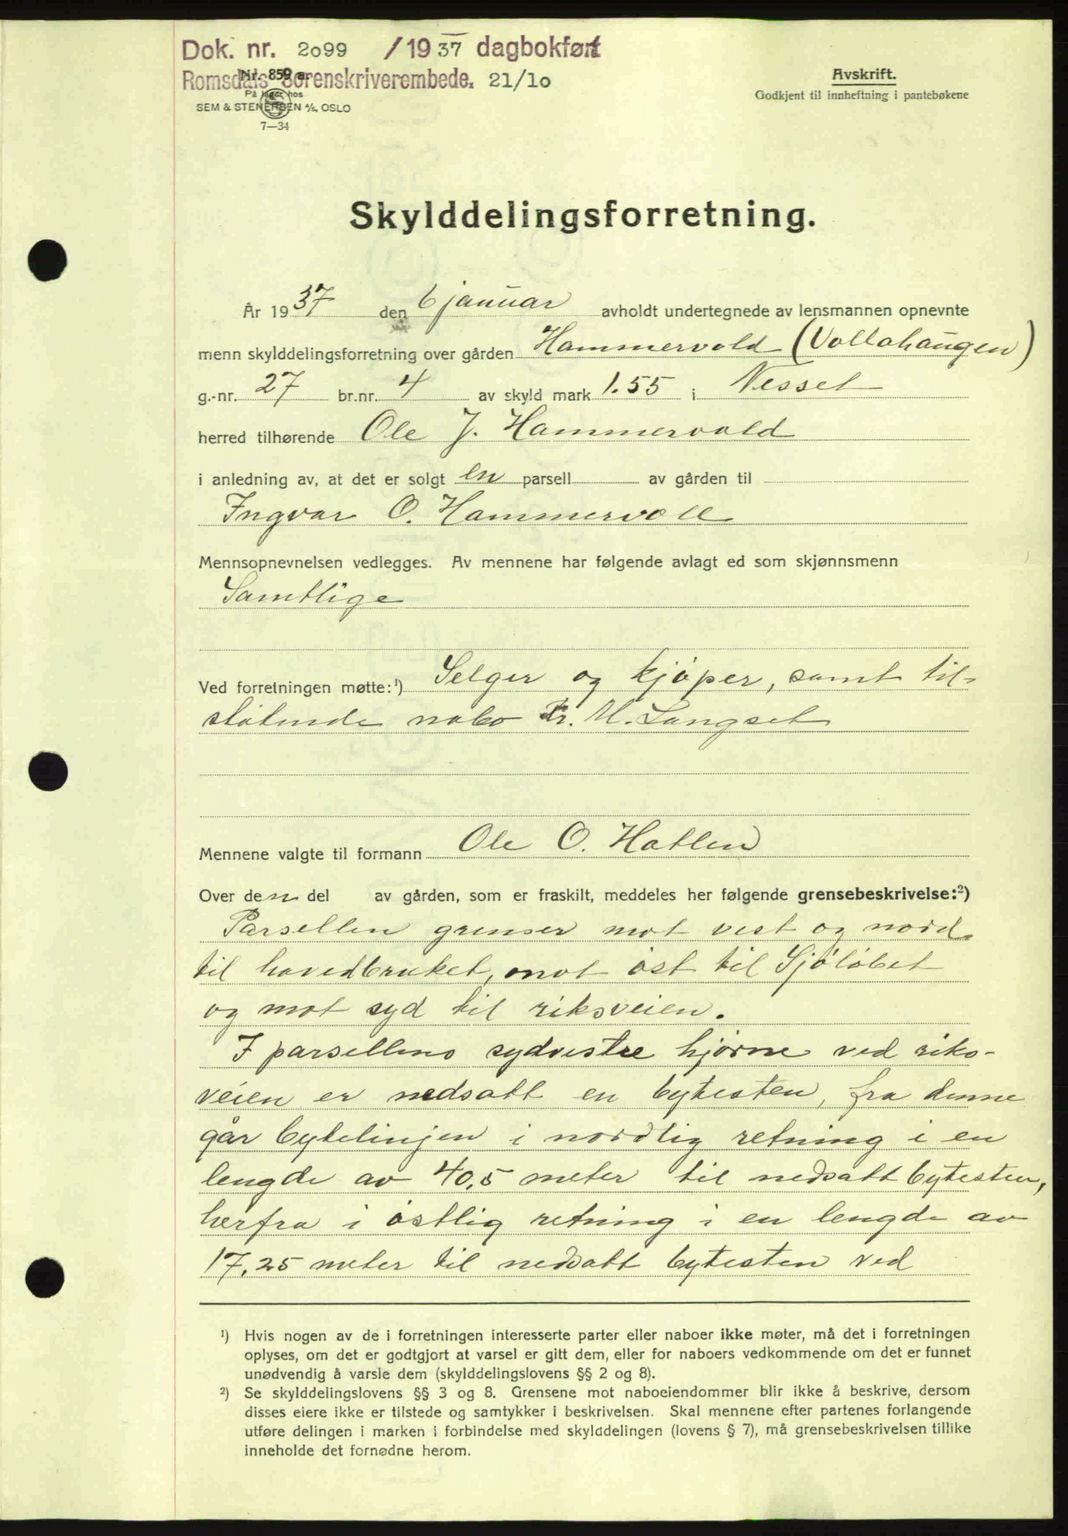 Dok. nr. 2099 /1937 dagbokført
Nr. 859 a.
Romsdals Sorenskriverembede. 21/10
På lager hos
SEM & STENERSEN A/S. OSLO
7—34
Avskrift.
Godkjent til innheftning i pantebøkene
Skylddelingsforretning.
År 1937 den 6 januar avholdt undertegnede av lensmannen opnevnte
menn skylddelingsforretning over gården Hammervold (Vollahaugen)
g.-nr. 27 br.nr. 4 av skyld mark 1.55 i Nesset
herred tilhørende Ole J. Hammervold
i anledning av, at det er solgt en parsell av gården til
Ingvar O. Hammervoll
Mennsopnevnelsen vedlegges. Av mennene har følgende avlagt ed som skjønnsmenn
Samtlige
Ved forretningen møtte:¹) Selger og kjøper, samt til-
støtende nabo Kr. M. Langset
Mennene valgte til formann Ole O. Hatlen
Over den del av gården, som er fraskilt, meddeles her følgende grensebeskrivelse:²)
Parsellen grenser mot vest og nord
til hovedbruket, mot øst til Sjøløbet
og mot syd til riksveien.
I parsellens sydvestre hjørne ved riks-
veien er nedsatt en bytesten, fra denne
går bytelinjen i nordlig retning i en
lengde av 40,5 meter til nedsatt bytesten,
herfra i østlig retning i en lengde av
17,25 meter til nedsatt bytesten ved
¹) Hvis nogen av de i forretningen interesserte parter eller naboer ikke møter, må det i forretningen
oplyses, om det er godtgjort at varsel er gitt dem, eller for naboers vedkommende om det er funnet
unødvendig å varsle dem (skylddelingslovens §§ 2 og 8).
²) Se skylddelingslovens §§ 3 og 8. Grensene mot naboeiendommer blir ikke å beskrive, dersom
disses eiere ikke er tilstede og samtykker i beskrivelsen. Skal mennene efter partenes forlangende
utføre delingen i marken i forbindelse med skylddelingen (lovens § 7), må grensebeskrivelsen tillike
inneholde det fornødne herom.